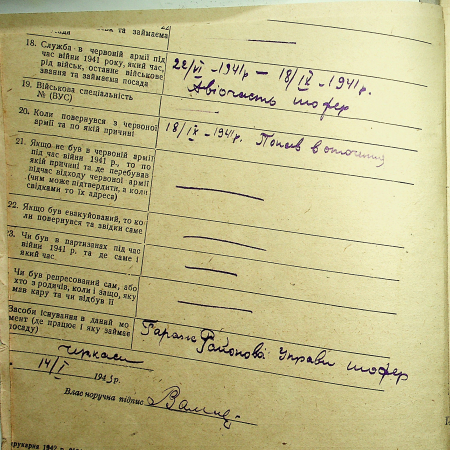 та займаєма
посада
18. Служба в червоній армії під
час війни 1941 року, який час,
рід військ, останнє військове
звання та займаєма посада
22/VI -1941р — 18/IX -1941р.
Авіочасть шофер
19. Військова спеціальність
№ (ВУС)
20. Коли повернувся з червоної
армії та по якій причині
18/IX -1941р. Попав в оточення
21. Якщо не був в червоній армії
під час війни 1941 р., то по
якій причині та де перебував
підчас відходу червоної армії
(чим може підтвердити, а коли
свідками то їх адреса)
22. Якщо був евакуйований, то ко-
ли повернувся та звідки саме
23. Чи був в партизанах під час
війни 1941 р. та де саме і
який час.
Чи був репресований сам, або
хто з родичів, коли і защо, яку
мав кару та чи відбув її
Засоби існування в даний мо-
мент (де працює і яку займає
посаду)
Гараж Районова Управи шофер
Черкаси
14/I 1943 р.
Власноручна підпис